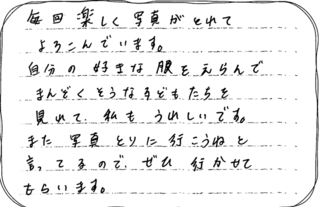 毎回 楽しく 写真が とれて
よろこんでいます。
自分の 好きな 服を えらんで
まんぞく そうな 子どもたちを
見れて、私も うれしいです。
また 写真 とりに 行こうね と
言ってるので、ぜひ 行かせて
もらいます。